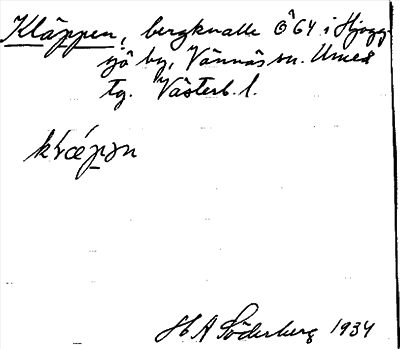 Kläppen, bergknalle Ö 64 i Hjogg-
sjö by, Vännäs sn. Umeå
tg. Västerb. l.
H A Söderberg 1934